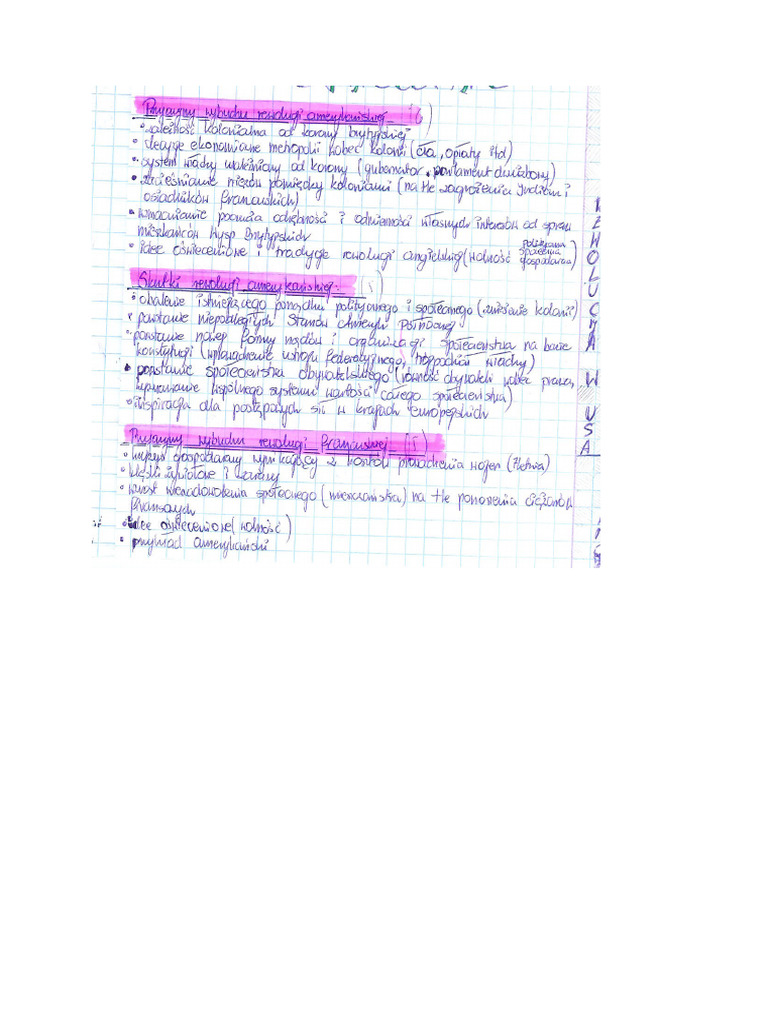 Przyczyny wybuchu rewolucji amerykańskiej
• zależność kolonialna od korony brytyjskiej
• decyzje ekonomiczne metropolii wobec kolonii (cła, opłaty itd)
• system władzy uzależniony od korony (gubernator, parlament dwuizbowy)
• zacieśnianie więzów pomiędzy koloniami (na tle zagrożenia Indian i
osadników francuskich)
• wzmacnianie poczucia odrębności i odmienności własnych interesów od spraw
mieszkańców Wysp Brytyjskich
• idee oświeceniowe i tradycje rewolucji angielskiej (wolność polityczna społeczna gospodarcza)
Skutki rewolucji amerykańskiej:
• obalenie istniejącego porządku politycznego i społecznego (zniesienie kolonii)
• powstanie niepodległych Stanów Ameryki Północnej
• powstanie nowej formy rządów i organizacji społeczeństwa na bazie
konstytucji (wprowadzenie ustroju federacyjnego, trójpodział władzy)
• powstanie społeczeństwa obywatelskiego (równość obywateli wobec prawa,
wypracowanie wspólnego systemu wartości całego społeczeństwa)
• inspiracja dla postępowych sił w krajach europejskich
Przyczyny wybuchu rewolucji francuskiej
• kryzys gospodarczy wynikający z kosztów prowadzenia wojen
• klęski żywiołowe i
• wzrost niezadowolenia społecznego (mieszczaństwa) na tle ponoszenia ciężarów
finansowych
• idee oświeceniowe (wolność)
• przykład amerykański
REWOLUCJA W USA